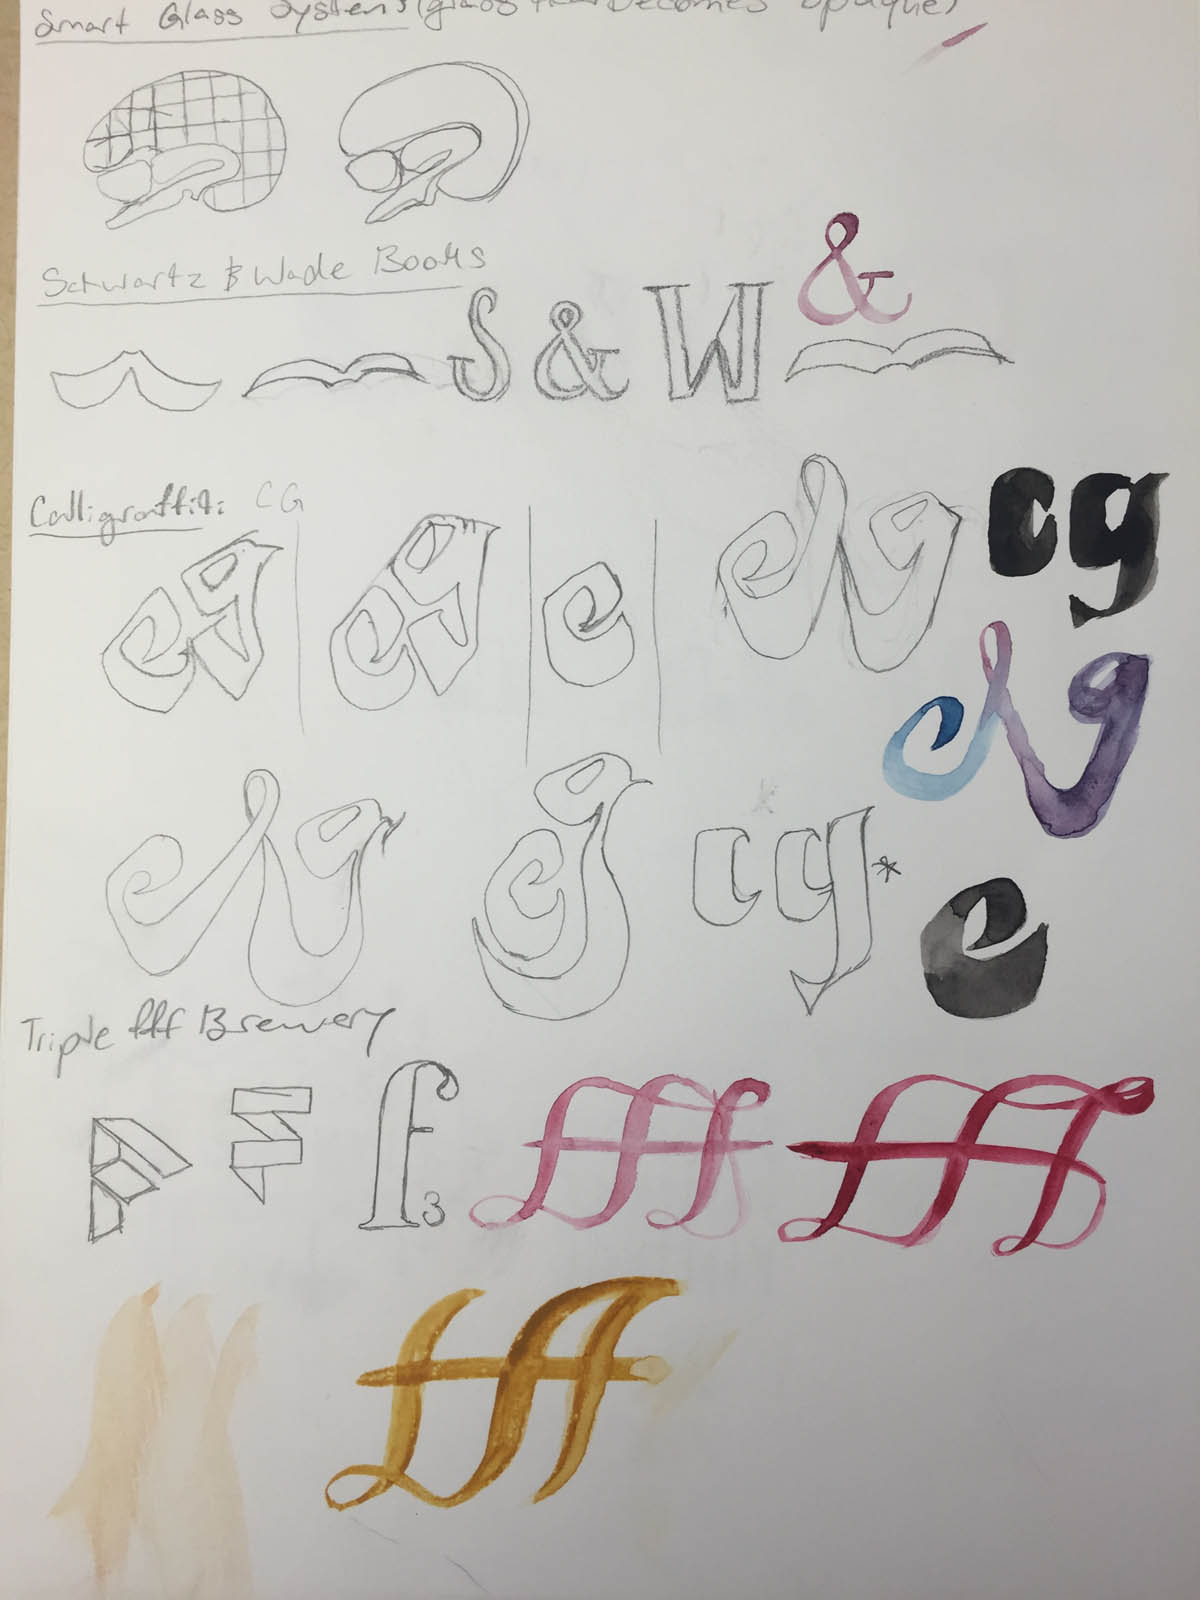 Smart Glass Systems (glass that becomes opaque)
Schwartz & Wade Books
S & W &
Calligraffiti: CG
cg cg e cg cg
cg
cg cg cg *
e
Triple fff Brewery
F F f3 fff fff
fff